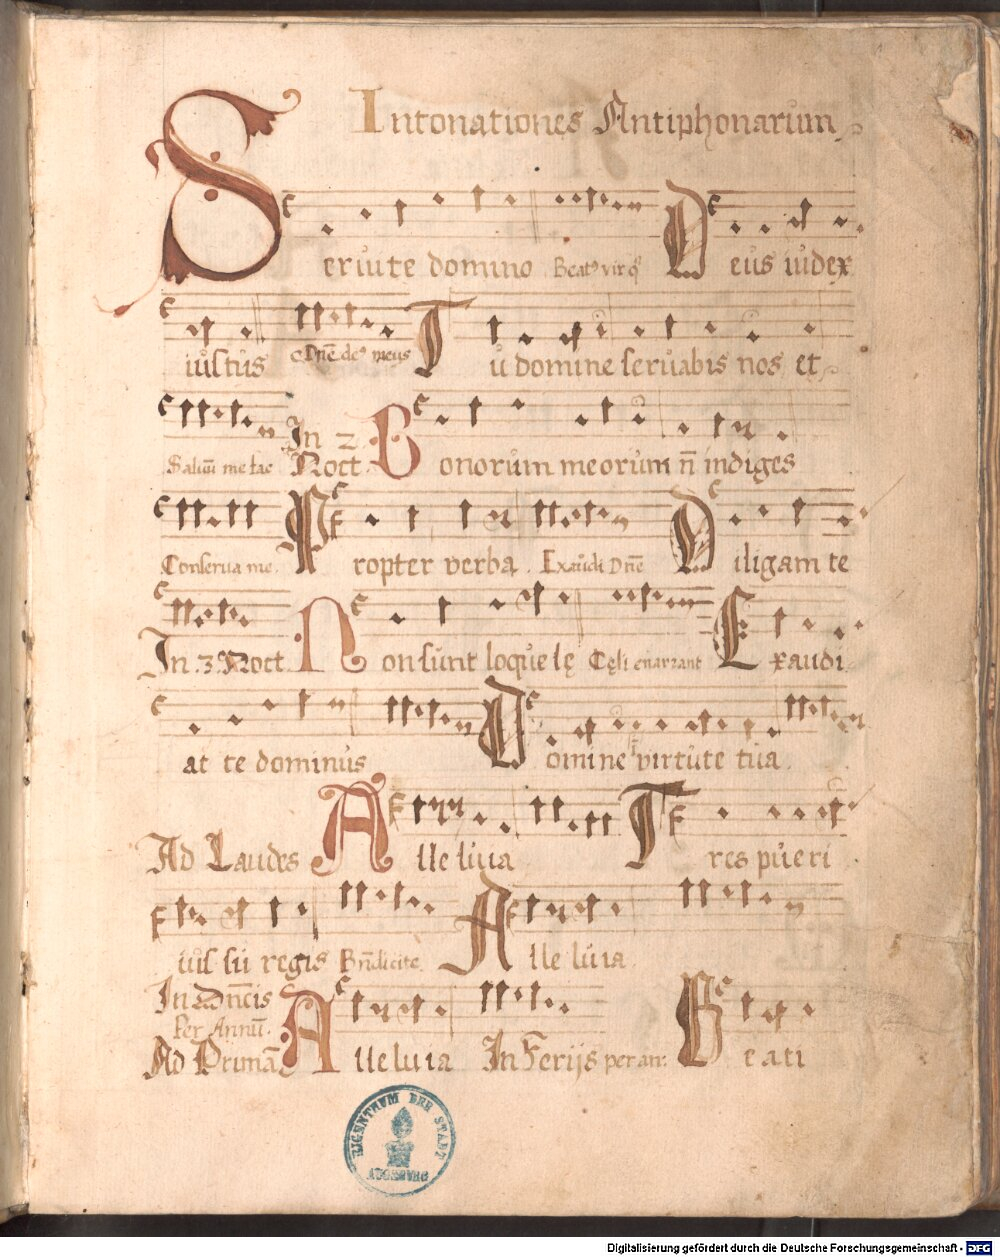 Intonationes Antiphonarum
Seruite domino Beatꝰ vir qͥ Deus iudex
iustus Dn̄e deꝰ meus Tu domine seruabis nos et
Saluū me fac In 2 Noct. Bonorum meorum n̄ indiges
Conserua me. Propter verba. Exaudi Dn̄e Diligam te
In .3. Noct. Non sunt loquelę Cęli enarrant Exaudi
at te dominus Domine in virtute tua.
Ad Laudes Alleluia Tres pueri
iussu regis Bn̄dicite. Alleluia
In Dn̄icis
Per Annū.
Ad Primā Alleluia In Ferijs per an: Beati
EIGENTHUM DER STADT AUGSBURG
Digitalisierung gefördert durch die Deutsche Forschungsgemeinschaft - DFG